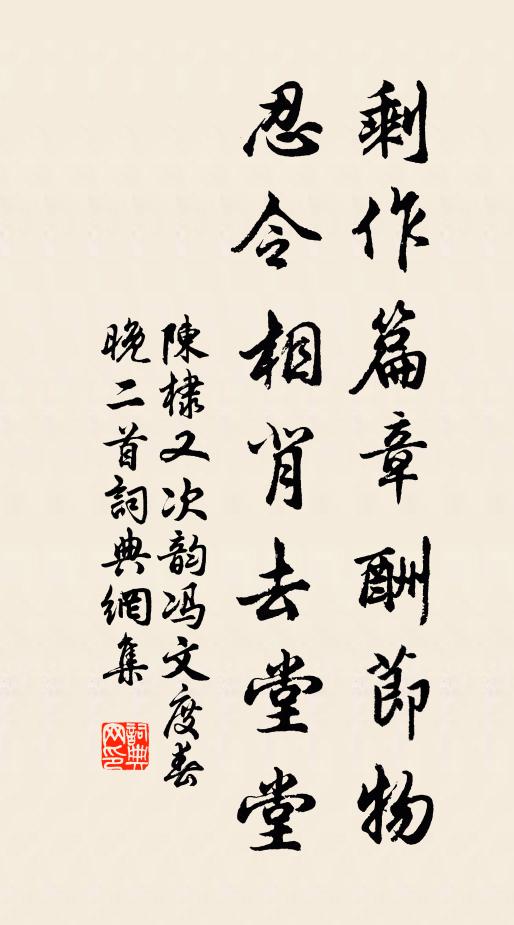 剩作篇章酬節物
忍令相背去堂堂
陳棣又次韵馮文度春
晚二首詞典網集
詞典
网印